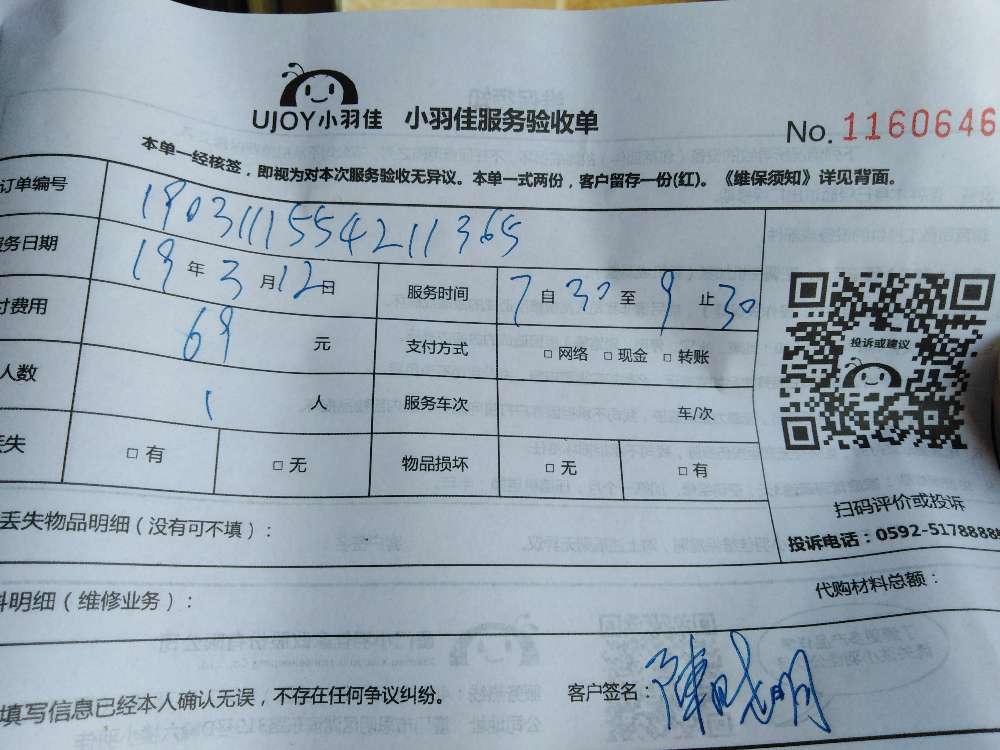 UJOY小羽佳 小羽佳服务验收单
No. 1160646
本单一经核签，即视为对本次服务验收无异议。本单一式两份，客户留存一份(红)。《维保须知》详见背面。
订单编号 1903111554211365
务日期 19年3月12日 服务时间 7自30至9止30
付费用 69元 支付方式 □网络 □现金 □转账
人数 1人 服务车次 车/次
丢失 □有 □无 物品损坏 □无 □有
投诉或建议
扫码评价或投诉
投诉电话：0592-5178888
丢失物品明细（没有可不填）：
料明细（维修业务）： 代购材料总额：
填写信息已经本人确认无误，不存在任何争议纠纷。 客户签名：